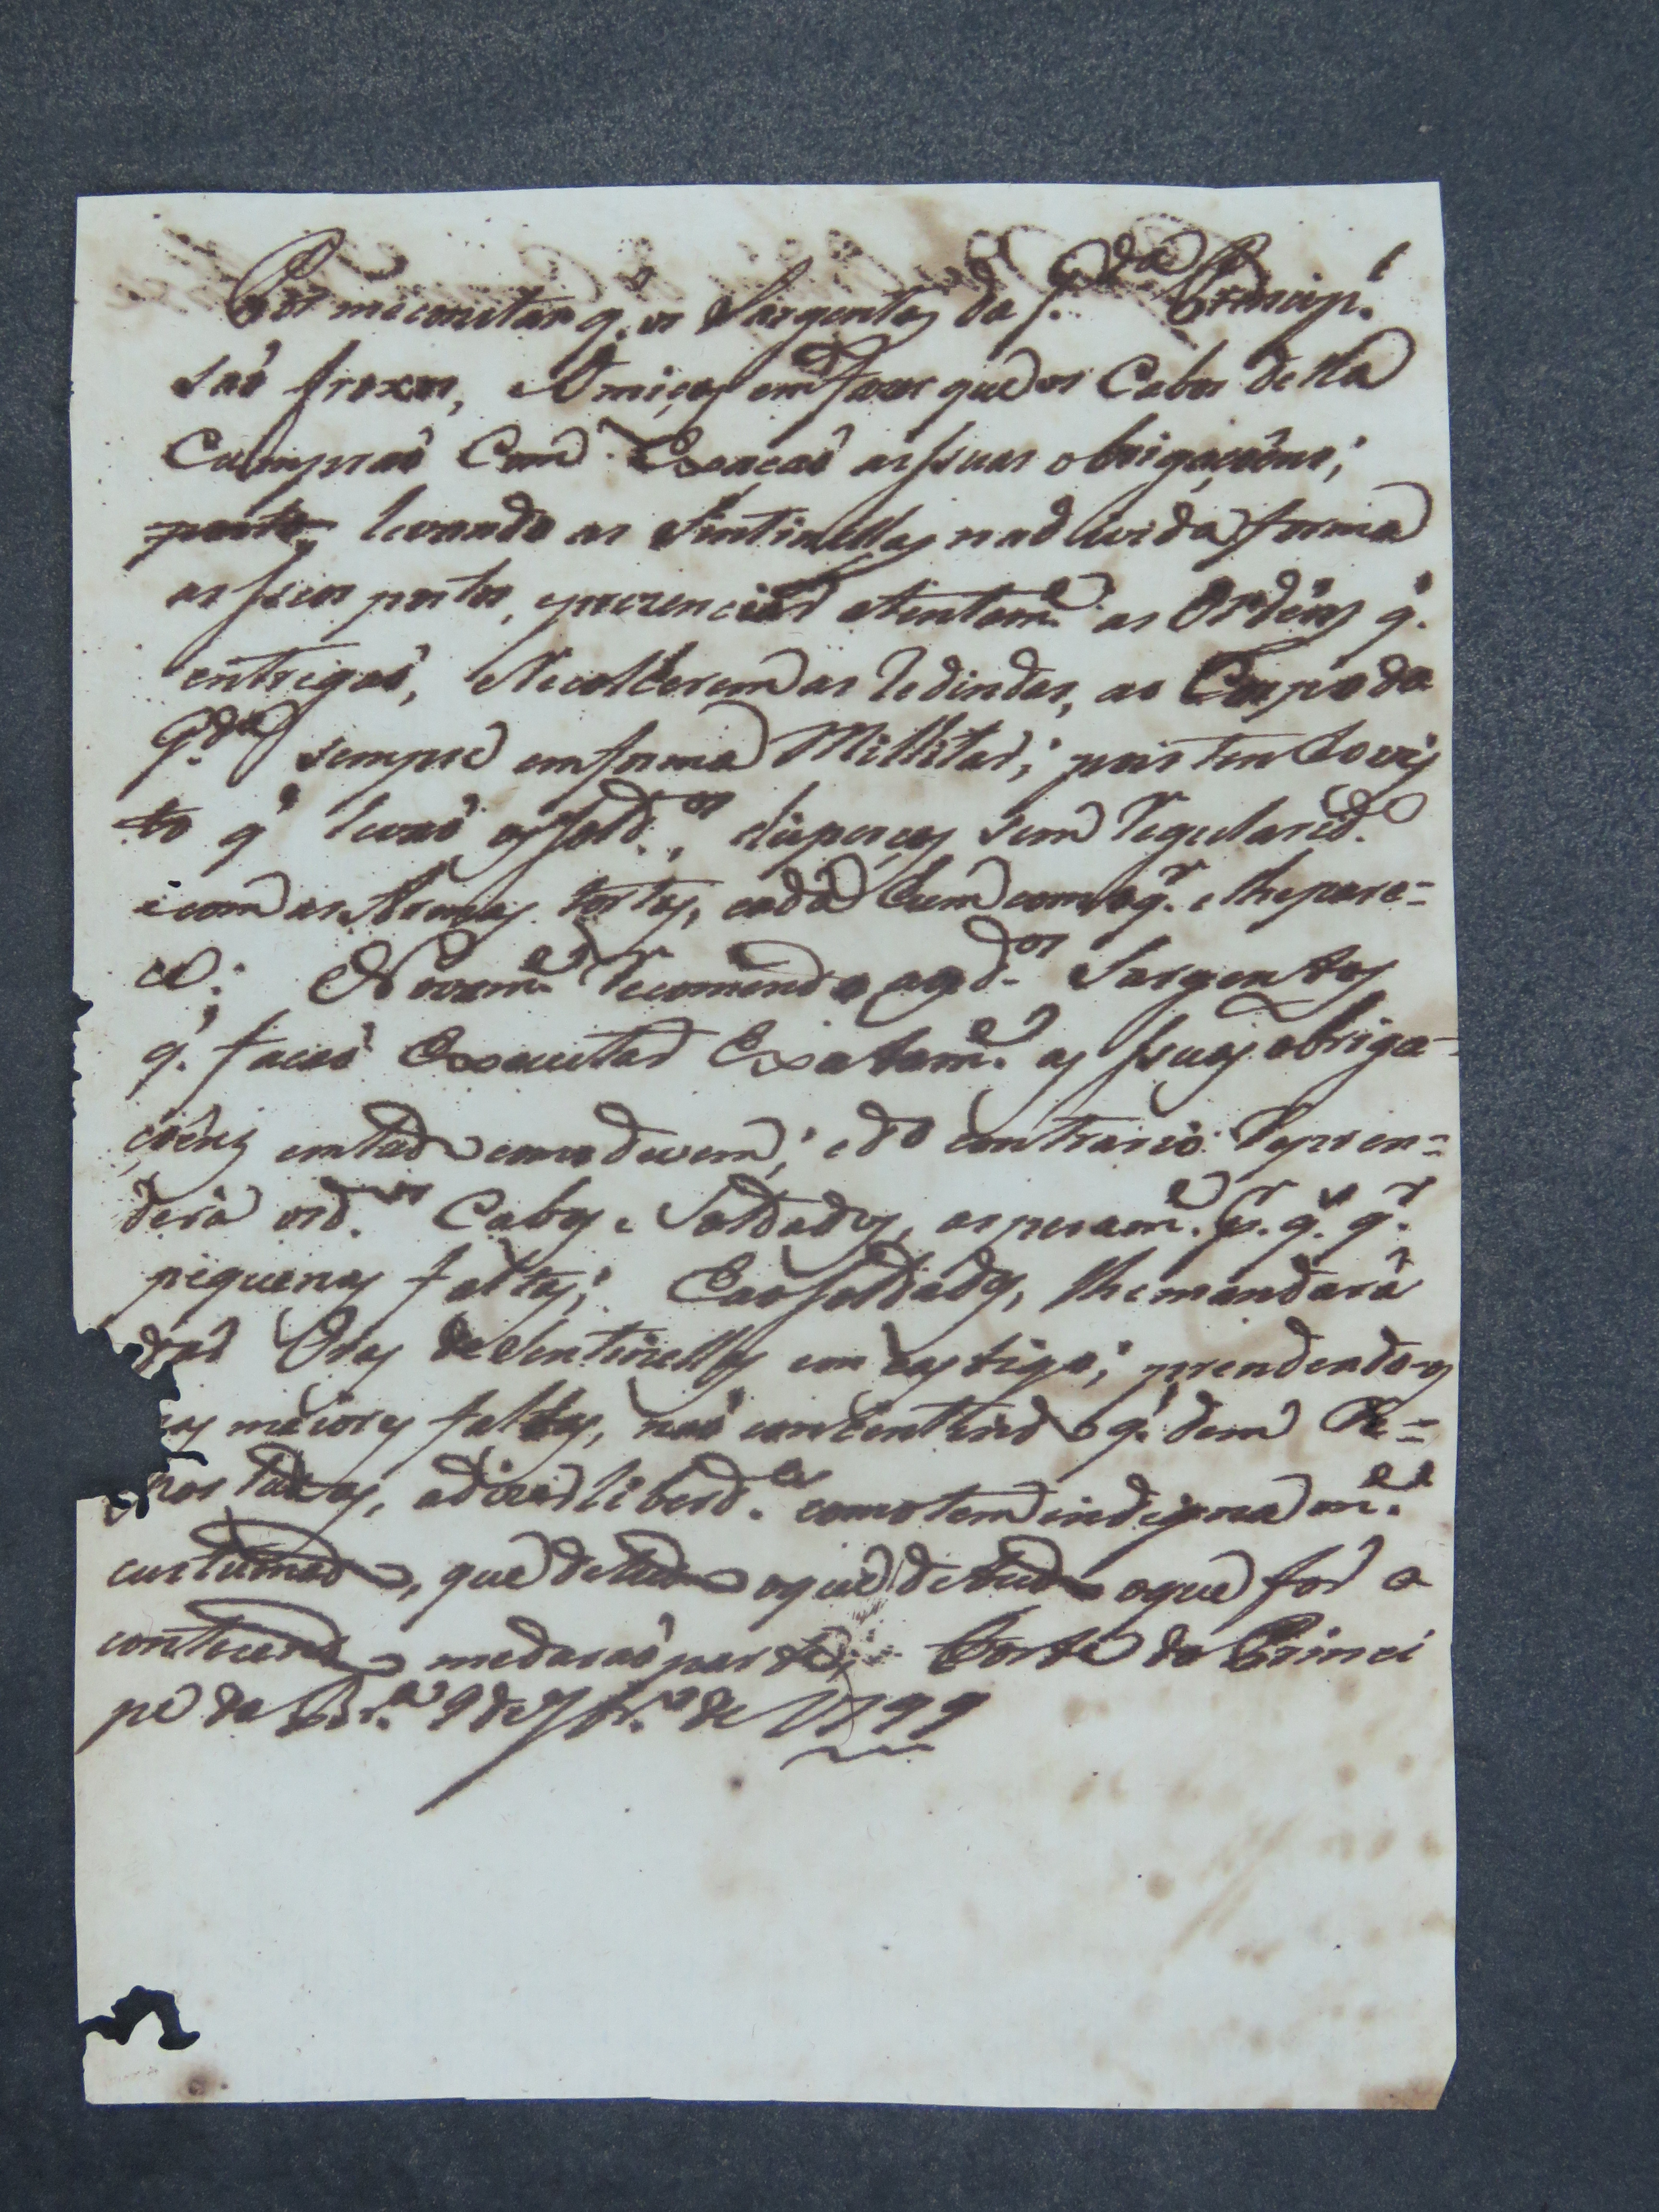 Por meconstar q. os Sargentos da G.da Princip.l
saõ froxos, e Omiços em fazer que os Cabos della
Cumpraõ Com Exacaõ as suas obrigaçoẽns;
levando as Sintinellas na divida forma
as seus postos, e prezenciar atentam.e as Ordẽns q.
entregaõ, e Recolherem as Redindas, ao Corpo da
G.da sempre em forma Millitar; pois tenho vis
to q̃ levaõ os sold.os, disperços sem Regularid.e
e com as Armas tortas, cada hum como q.r e lhe pare=
ce: Novam.e Recomendo aos d.os Sargentos
q. facaõ Executar Exatam.e as suas obriga-
çoẽns em tudo como devem; e do contrario Repren=
derá os d.os Cabos e Soldados, asperam.e p.r q.l q.r
piquenas faltas; E aos soldados, lhe mandará
dar Oras de Sentinellas em castigo; prendendo os
nas maiores faltas, naõ consentindo q. dem Re=
postadas, a diias liberd.es como tem indignam.e
custumado, que de tudo o que de tudo o que for a
contecendo medaraõ parte; Forte do Princi
pe da Br.a 9 de 7br.o de 1799